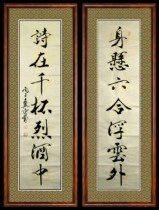 身懸六合浮雲外
詩在千杯烈酒中